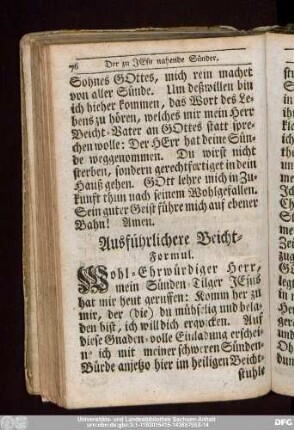 76 Der zu JEsu nahende Sünder.
Sohnes GOttes, mich rein machet
von aller Sünde. Um deßwillen bin
ich hieher kommen, das Wort des Le-
bens zu hören, welches mir mein Herr
Beicht-Vater an GOttes statt spre-
chen wolle: Der HErr hat deine Sün-
de weggenommen. Du wirst nicht
sterben, sondern gerechtfertiget in dein
Hauß gehen. GOtt lehre mich in Zu-
kunfft thun nach seinem Wohlgefallen.
Sein guter Geist führe mich auf ebener
Bahn! Amen.
Ausführlichere Beicht-
Formul.
Wohl-Ehrwürdiger Herr,
mein Sünden-Tilger JEsus
hat mir heut geruffen: Komm her zu
mir, der (die) du mühselig und bela-
den bist, ich will dich erqvicken. Auf
diese Gnaden-volle Einladung erschei-
ne ich mit meiner schweren Sünden-
Bürde anjetzo hier im heiligen Beicht-
stuhle
Universitäts- und Landesbibliothek Sachsen-Anhalt
DFG